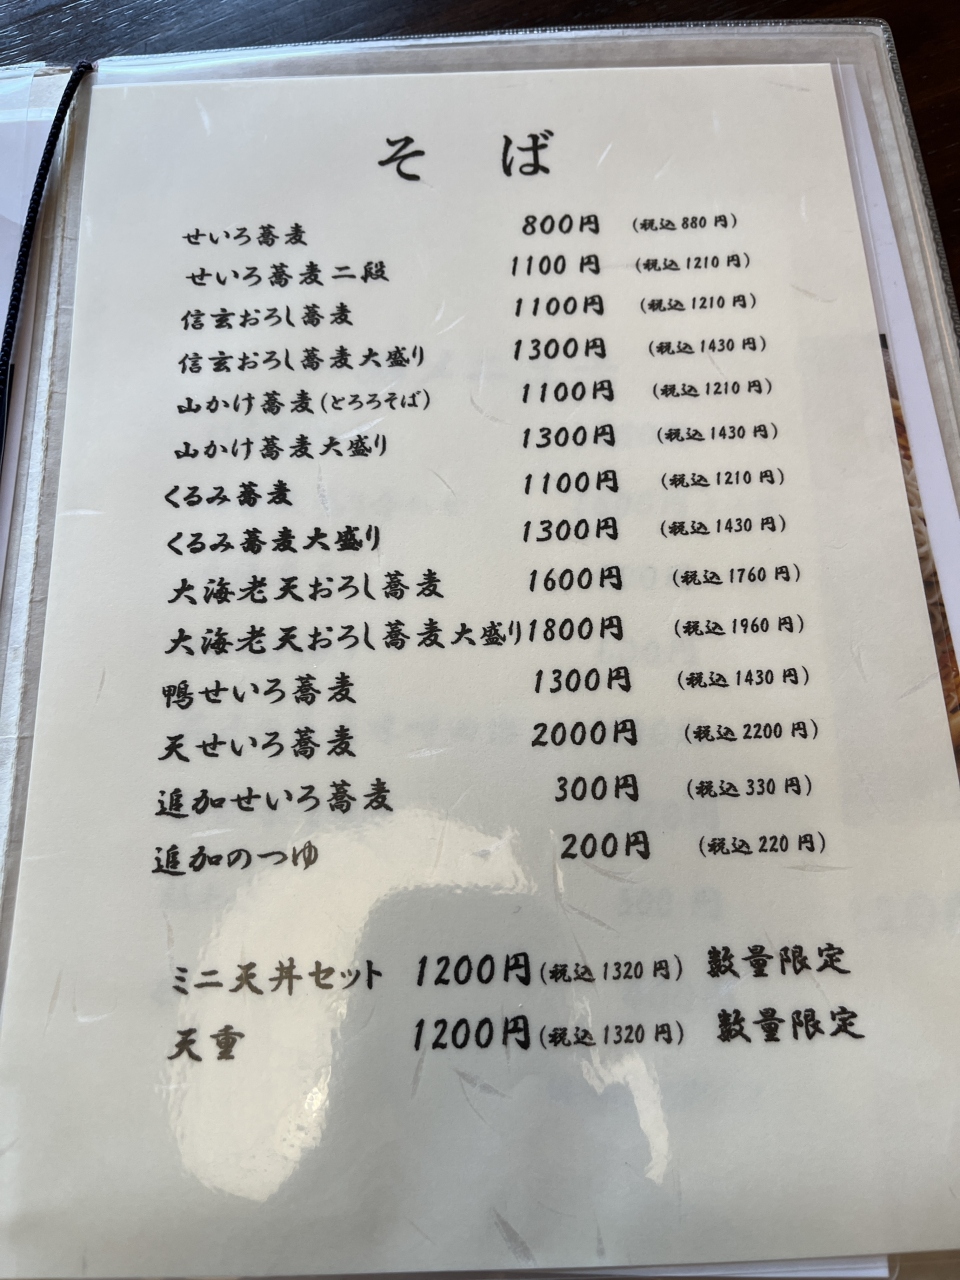 そば
せいろ蕎麦 800円 (税込880円)
せいろ蕎麦二段 1100円 (税込1210円)
信玄おろし蕎麦 1100円 (税込1210円)
信玄おろし蕎麦大盛り 1300円 (税込1430円)
山かけ蕎麦(とろろそば) 1100円 (税込1210円)
山かけ蕎麦大盛り 1300円 (税込1430円)
くるみ蕎麦 1100円 (税込1210円)
くるみ蕎麦大盛り 1300円 (税込1430円)
大海老天おろし蕎麦 1600円 (税込1760円)
大海老天おろし蕎麦大盛り1800円 (税込1960円)
鴨せいろ蕎麦 1300円 (税込1430円)
天せいろ蕎麦 2000円 (税込2200円)
追加せいろ蕎麦 300円 (税込330円)
追加のつゆ 200円 (税込220円)
ミニ天丼セット 1200円(税込1320円) 数量限定
天重 1200円(税込1320円) 数量限定